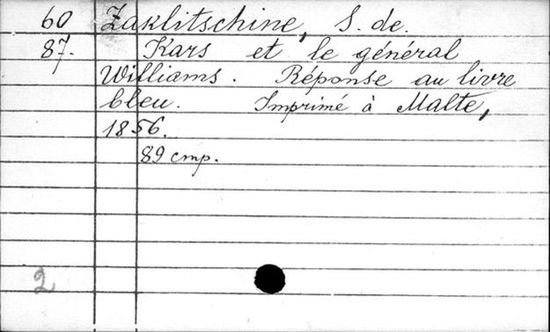 60 Zaklitschine, S. de.
87. Kars et le général
Williams. Réponse au livre
bleu. Imprimé à Malte,
1856.
89 стр.
2